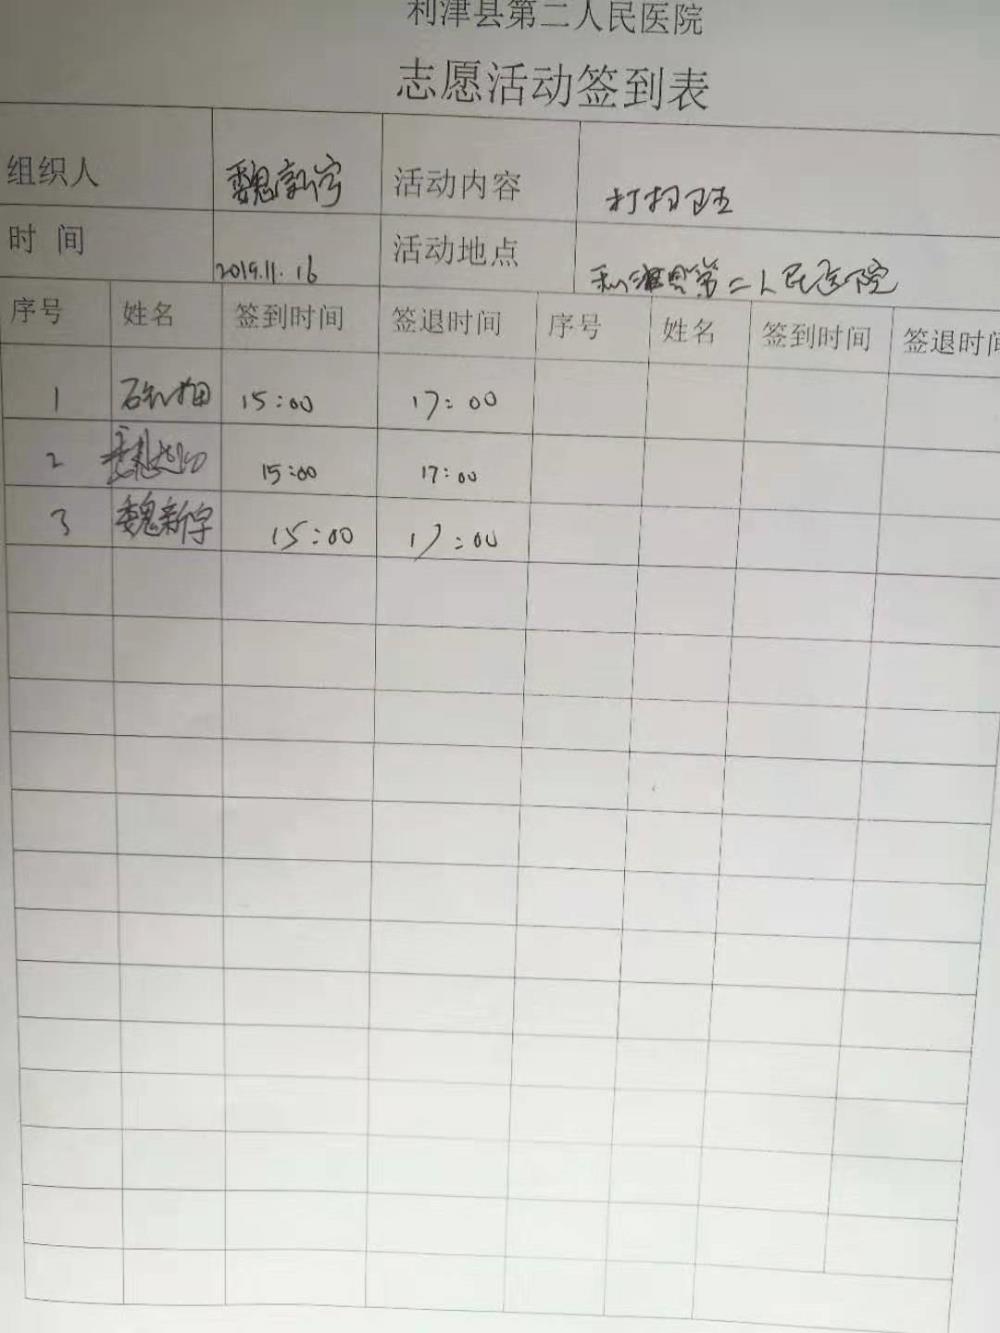 利津县第二人民医院
志愿活动签到表
组织人 魏新宇 活动内容 打扫卫
时 间 2019.11.16 活动地点 利津县第二人民医院
序号 姓名 签到时间 签退时间 序号 姓名 签到时间 签退时间
1 15:00 17:00
2 15:00 17:00
3 魏新宇 15:00 17:00